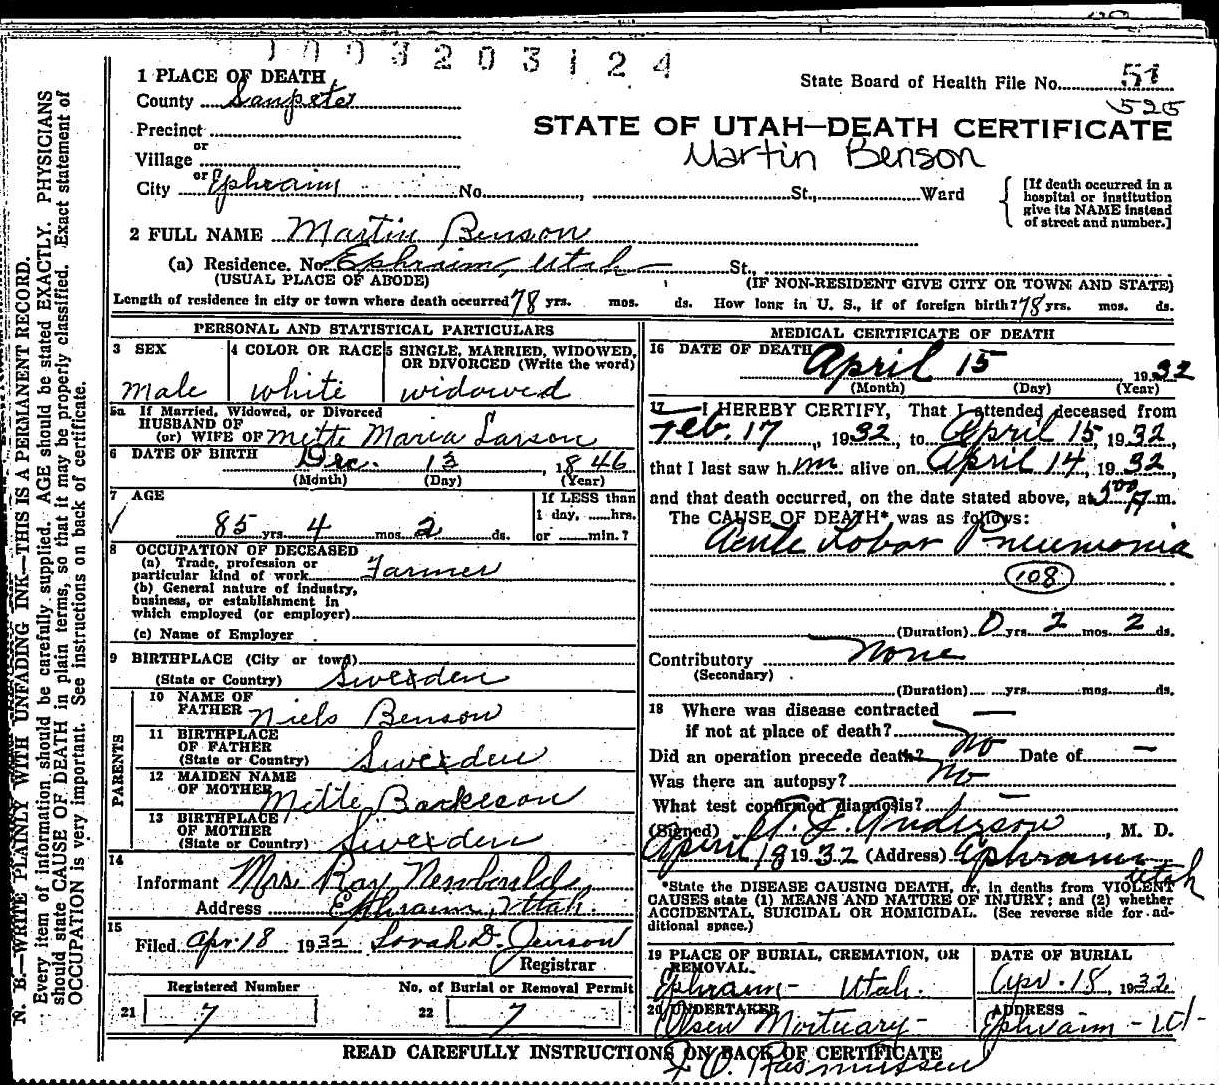 1003203124
1 PLACE OF DEATH
State Board of Health File No. 51
County Sanpete
525
Precinct
STATE OF UTAH—DEATH CERTIFICATE
or
Village
Martin Benson
or
City Ephraim No. , St., Ward
[If death occurred in a
hospital or institution
give its NAME instead
of street and number.]
2 FULL NAME Martin Benson
(a) Residence. No. Ephraim, Utah St.,
(USUAL PLACE OF ABODE) (IF NON-RESIDENT GIVE CITY OR TOWN AND STATE)
Length of residence in city or town where death occurred 78 yrs. mos. ds. How long in U. S., if of foreign birth? 78 yrs. mos. ds.
PERSONAL AND STATISTICAL PARTICULARS
3 SEX
Male
4 COLOR OR RACE
white
5 SINGLE, MARRIED, WIDOWED,
OR DIVORCED (Write the word)
widowed
5a If Married, Widowed, or Divorced
HUSBAND OF
(or) WIFE OF Mette Maria Larson
6 DATE OF BIRTH Dec. 13, 1846
(Month) (Day) (Year)
7 AGE
85 yrs. 4 mos. 2 ds.
If LESS than
1 day, ......hrs.
or ......min.?
8 OCCUPATION OF DECEASED
(a) Trade, profession or
particular kind of work Farmer
(b) General nature of industry,
business, or establishment in
which employed (or employer)
(c) Name of Employer
9 BIRTHPLACE (City or town)
(State or Country) Sweden
PARENTS
10 NAME OF
FATHER Niels Benson
11 BIRTHPLACE
OF FATHER
(State or Country) Sweden
12 MAIDEN NAME
OF MOTHER Mette
13 BIRTHPLACE
OF MOTHER
(State or Country) Sweden
14
Informant Mrs. Ray Newbould,
Address Ephraim, Utah.
15
Filed Apr. 18 1932 Sorah D. Jenson
Registrar
Registered Number
21 7
No. of Burial or Removal Permit
22 7
MEDICAL CERTIFICATE OF DEATH
16 DATE OF DEATH April 15 1932
(Month) (Day) (Year)
17 I HEREBY CERTIFY, That I attended deceased from
Feb. 17, 1932, to April 15, 1932,
that I last saw him alive on April 14, 1932,
and that death occurred, on the date stated above, at 5:00 A. m.
The CAUSE OF DEATH* was as follows:
Acute Lobar Pneumonia
108
(Duration) 0 yrs. 2 mos. 2 ds.
Contributory None
(Secondary)
(Duration) yrs. mos. ds.
18 Where was disease contracted
if not at place of death? —
Did an operation precede death? No Date of —
Was there an autopsy? No
What test confirmed diagnosis? —
(Signed) A. J. Anderson, M. D.
April 18 1932 (Address) Ephraim, Utah
*State the DISEASE CAUSING DEATH, or, in deaths from VIOLENT
CAUSES state (1) MEANS AND NATURE OF INJURY; and (2) whether
ACCIDENTAL, SUICIDAL OR HOMICIDAL. (See reverse side for additional space.)
19 PLACE OF BURIAL, CREMATION, OR
REMOVAL.
Ephraim - Utah.
DATE OF BURIAL
Apr. 18, 1932
20 UNDERTAKER
Olsen Mortuary -
ADDRESS
Ephraim - Ut -
READ CAREFULLY INSTRUCTIONS ON BACK OF CERTIFICATE
Rasmussen
N. B.—WRITE PLAINLY WITH UNFADING INK—THIS IS A PERMANENT RECORD.
Every item of information should be carefully supplied. AGE should be stated EXACTLY. PHYSICIANS
should state CAUSE OF DEATH in plain terms, so that it may be properly classified. Exact statement of
OCCUPATION is very important. See instructions on back of certificate.